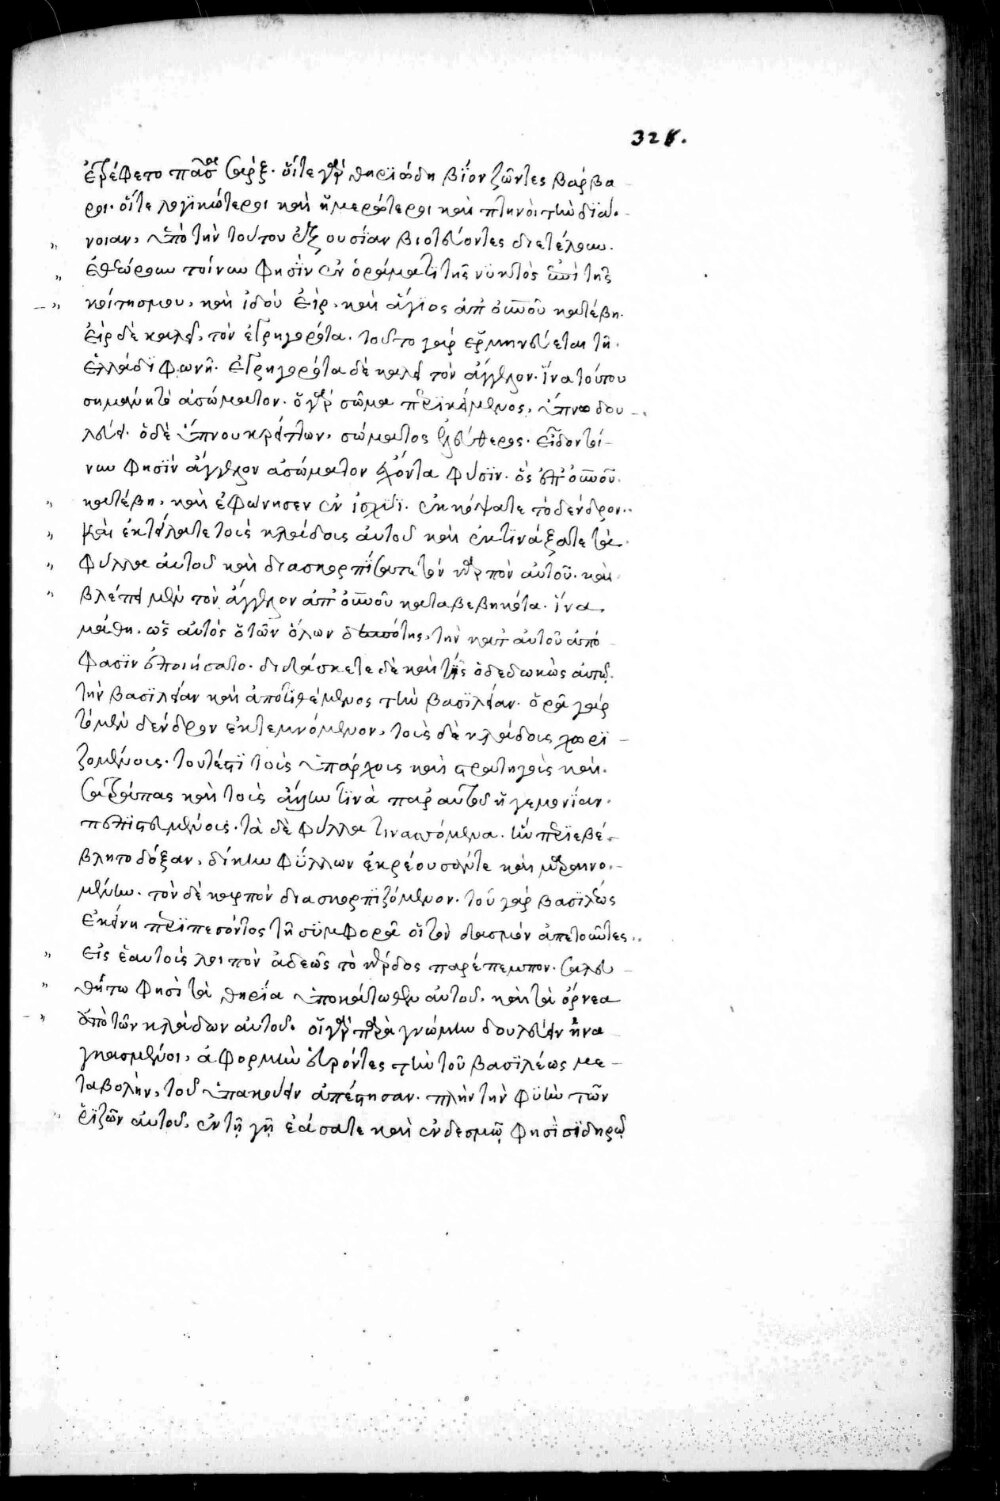 326.
ἐτρέφετο πᾶσα σάρξ. οἵτε γὰρ θηριώδη βίον ζῶντες βάρβα
ροι. οἵτε λογικώτεροι καὶ ἡμερώτεροι καὶ πτηνοὶ τὴν διά
νοιαν, ὑπὸ τὴν τούτου ἐξουσίαν βιοτεύοντες διετέλουν.
ἐθεώρουν τοίνυν φησὶν ἐν ὁράματι τῆς νυκτὸς ἐπὶ τῆς
κοίτης μου, καὶ ἰδοὺ εἲρ, καὶ ἅγιος ἀπ' οὐνοῦ κατέβη.
εἲρ δὲ καλεῖ, τὸν ἐγρηγορότα. τοῦτο γὰρ ἑρμηνεύεται τῆ
ἑλλάδι φωνῆ. ἐγρηγορότα δὲ καλεῖ τὸν ἄγγελον. ἵνα τούτου
σημάνη τὸ ἀσώματον. ὁ γὰρ σῶμα περικείμενος, ὕπνω δου
λεύει. ὁ δὲ ὕπνου κρείττων, σώματος ἐλεύθερος. εἶδον τοί
νυν φησὶν ἄγγελον ἀσώματον ἔχοντα φύσιν. ὃς ἀπ' οὐνοῦ
κατέβη, καὶ ἐφώνησεν ἐν ἰσχύϊ. ἐκκόψατε τὸ δένδρον.
καὶ ἐκτίλατε τοὺς κλάδους αὐτοῦ καὶ ἐκτινάξατε τὰ
φύλλα αὐτοῦ καὶ διασκορπίσατε τὸν καρπὸν αὐτοῦ. καὶ
βλέπει μὲν τὸν ἄγγελον ἀπ' οὐνοῦ καταβεβηκότα. ἵνα
μάθη. ὡς αὐτὸς ὁ τῶν ὅλων δεσπότης, τὴν κατ' αὐτοῦ ἀπό
φασιν ἐποιήσατο. διδάσκεται δὲ καὶ τίς ὁ δεδωκὼς αὐτῶ
τὴν βασιλείαν καὶ ἀποτιθέμενος τὴν βασιλείαν. ὁρᾶ γὰρ
τὸ μὲν δένδρον ἐκτεμνόμενον, τοὺς δὲ κλάδους χωρι
ζομένους. τουτέστι τοὺς ὑπάρχους καὶ στρατηγοὺς καὶ
σατράπας καὶ τοὺς ἄλλην τινὰ παρ' αὐτοῦ ἡγεμονίαν
πεπιστευμένους. τὰ δὲ φύλλα τινασσόμενα. ἣν περιεβέ
βλητο δόξαν, δίκην φύλλων ἐκρέουσάν τε καὶ μαραινο
μένην. τὸν δὲ καρπὸν διασκορπιζόμενον. τοῦ γὰρ βασιλέως
ἐκείνη περιπεσόντος τῆ συμφορᾶ οἱ τὸν δασμὸν ἀπετοῦντες
εἰς ἑαυτοὺς λοιπὸν ἀδεῶς τὸ κέρδος παρέπεμπον. σαλευ
θήτω φησὶ τὰ θηρία ὑποκάτωθεν αὐτοῦ. καὶ τὰ ὄρνεα
ἀπὸ τῶν κλάδων αὐτοῦ. οἱ γὰρ παρὰ γνώμην δουλεύειν ἠνα
γκασμένοι, ἀφορμὴν εὑρόντες τὴν τοῦ βασιλέως με
ταβολὴν, τοῦ ὑπακούειν ἀπέστησαν. πλὴν τὴν φυὴν τῶν
ῥιζῶν αὐτοῦ, ἐν τῇ γῇ ἐάσατε καὶ ἐν δεσμῷ φησὶ σιδηρῷ